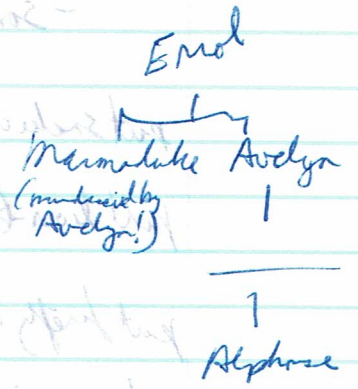 Errol
Marmaduke Avelyn
(murdered by
Avelyn!)
Alphonse